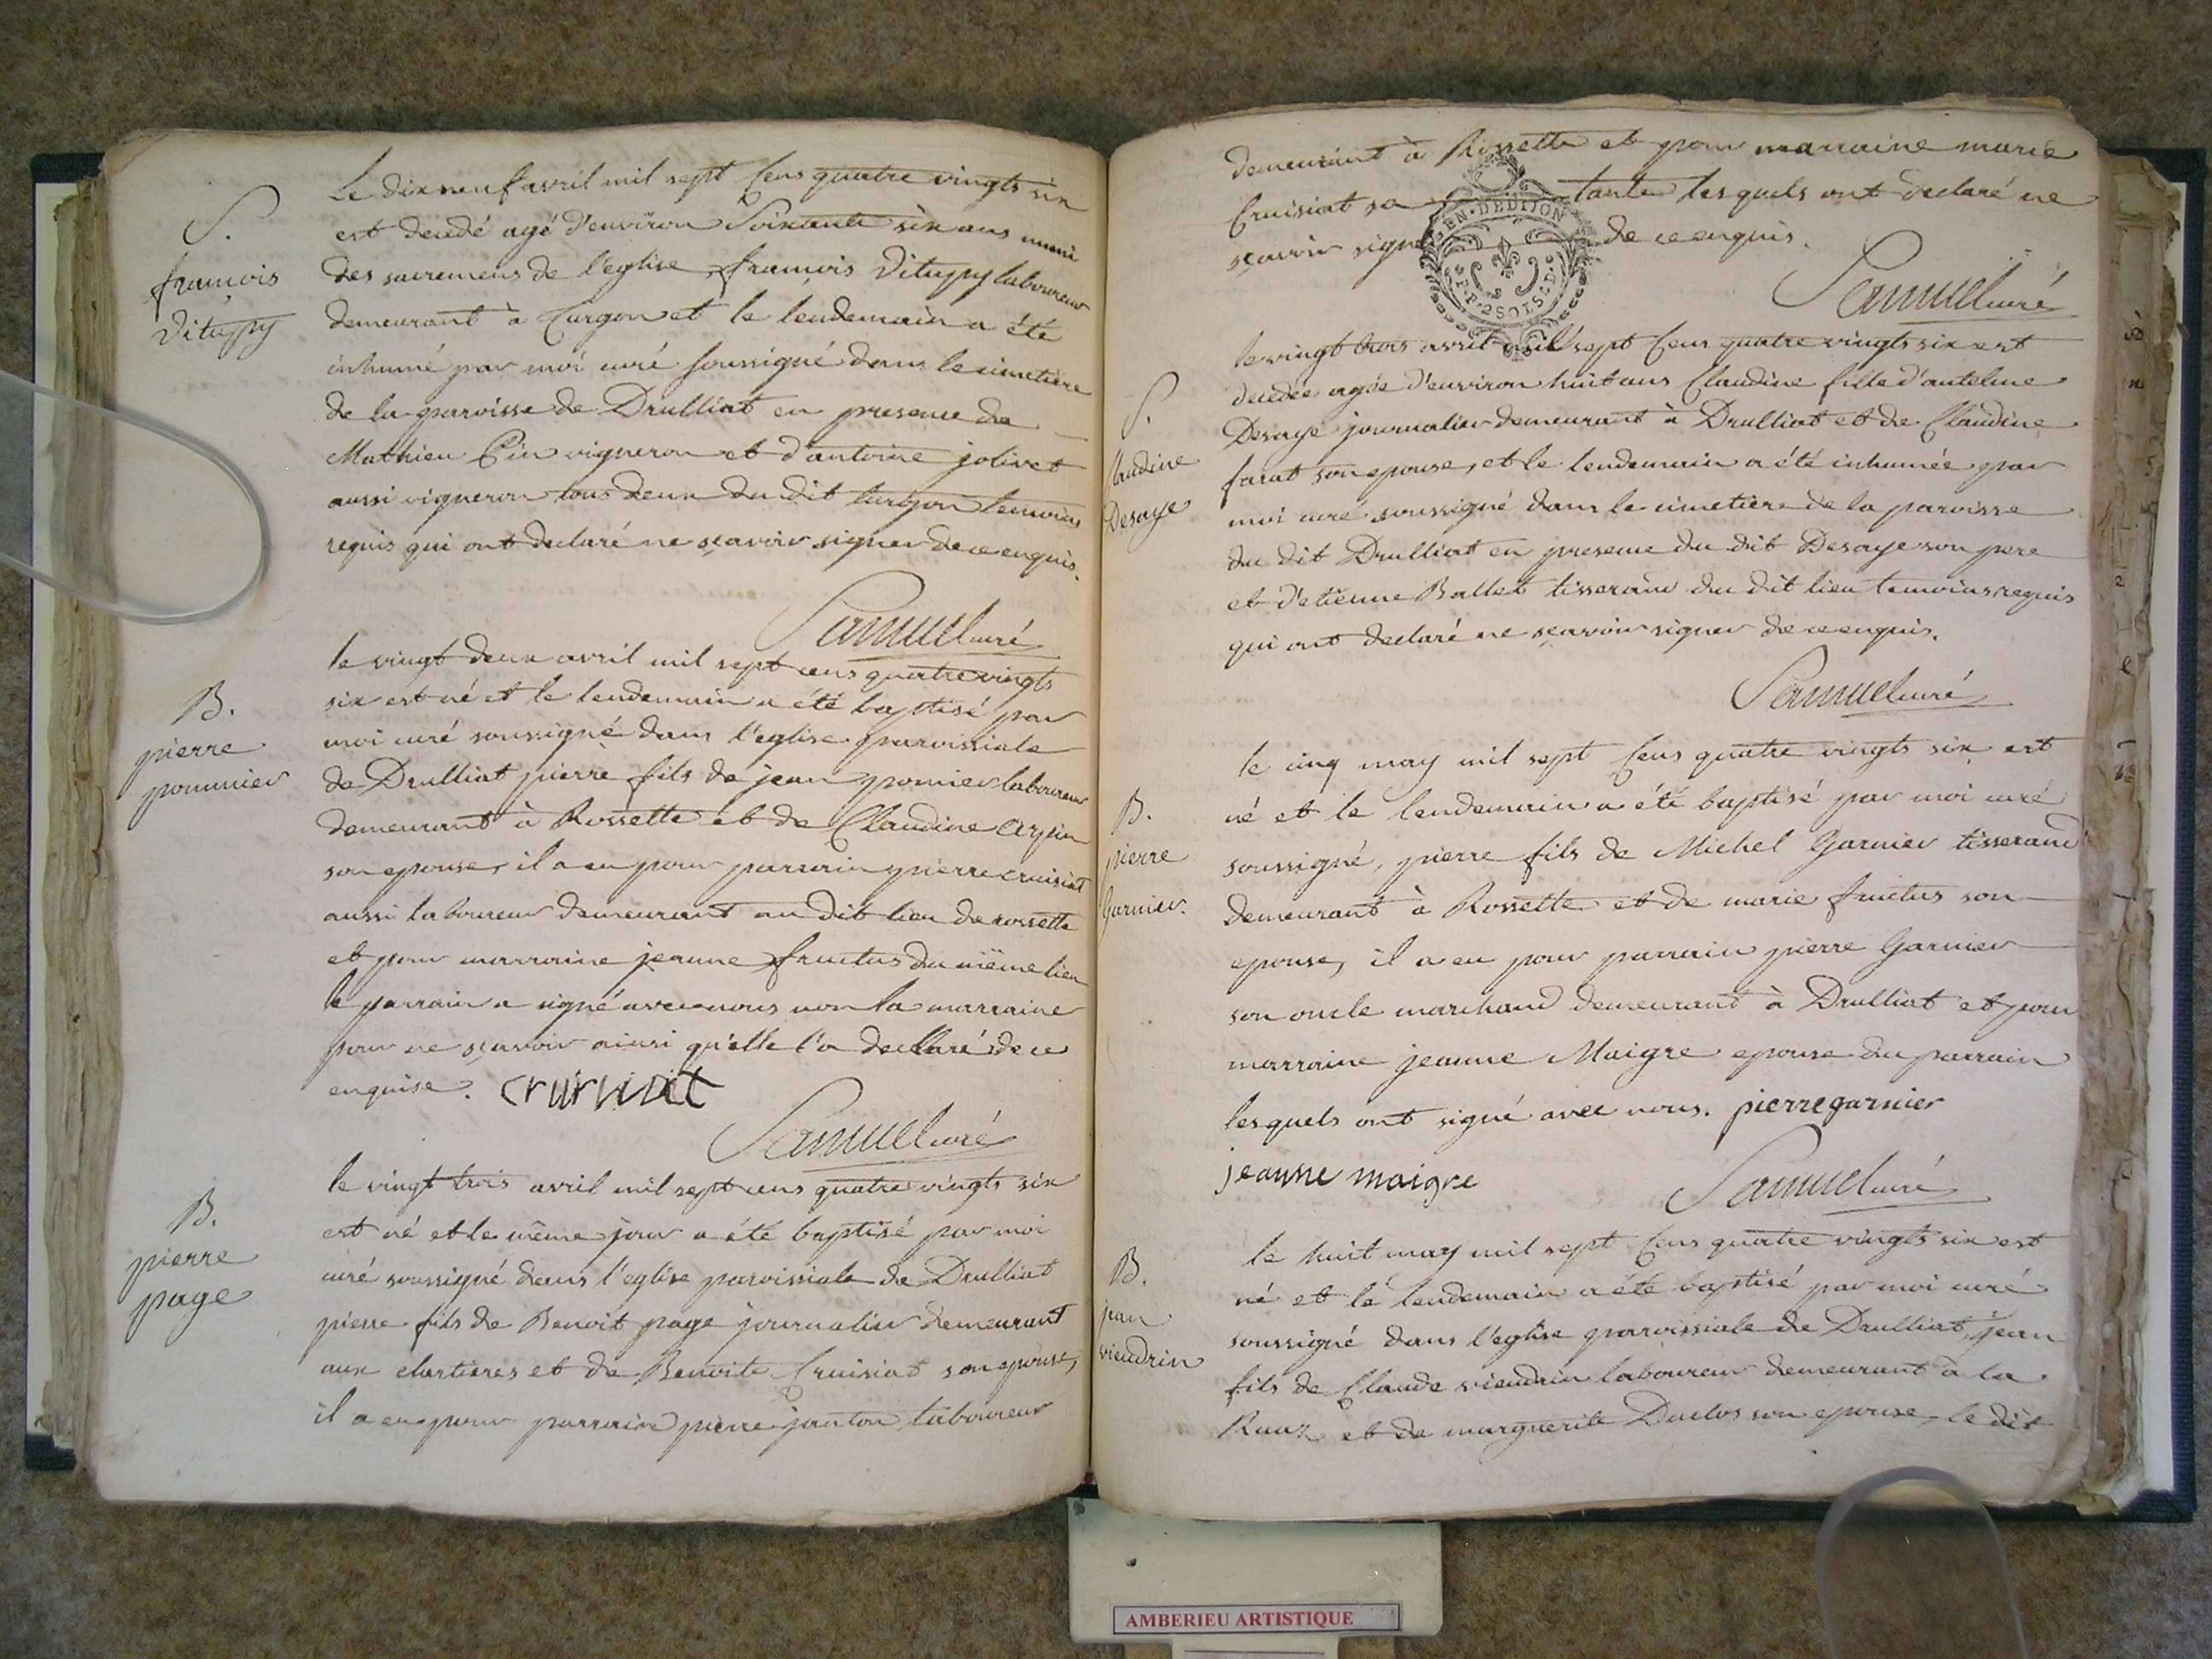 S.
françois
Ditupy
Le dix neuf avril mil sept Cens quatre vingts six
est decedé agé d'environ Soixante six ans muni
des sacremens de l'eglise françois Ditupy laboureur
demeurant à Turgon et le lendemain a été
inhumé par moi curé soussigné dans le cimetiere
de la paroisse de Drulliat en presence de
Mathieu Pin vigneron et d'antoine jolivet
aussi vigneron tous deux du dit turgon temoins
requis qui ont declaré ne sçavoir signer de ce enquis.
Samuel curé
B.
pierre
pommier
le vingt deux avril mil sept cens quatre vingts
six est né et le lendemain a été baptisé par
moi curé soussigné dans l'eglise paroissiale
de Drulliat pierre fils de jean pomier laboureur
demeurant à Rossette et de Claudine Arpin
son epouse, il a eu pour parrain pierre cruisiat
aussi laboureur demeurant au dit lieu de rossette
et pour marraine jeanne fructus du même lieu
le parrain a signé avec nous non la marraine
pour ne sçavoir ainsi qu'elle l'a declaré de ce
enquise. cruisiat
Samuel curé
B.
pierre
page
le vingt trois avril mil sept cens quatre vingts six
est né et le même jour a été baptisé par moi
curé soussigné dans l'eglise paroissiale de Drulliat
pierre fils de Benoit page journalier demeurant
aux et de Benoite Cruisiat son epouse,
il a eu pour parrain pierre janton laboureur
demeurant à Rossette et pour marraine marie
Cruisiat sa tante lesquels ont declaré ne
sçavoir signer de ce enquis.
GEN. DE DIJON
P.P. 2 SOLS. D.
Samuel curé
S.
Claudine
Desaye
le vingt trois avril mil sept Cens quatre vingts six est
decedée agée d'environ huit ans Claudine fille d'antelme
Desaye journalier demeurant à Drulliat et de Claudine
farat son epouse, et le lendemain a été inhumée par
moi curé soussigné dans le cimetiere de la paroisse
du dit Drulliat en presence du dit Desaye son pere
et d'etienne Ballet tisserand du dit lieu temoins requis
qui ont declaré ne sçavoir signer de ce enquis.
Samuel curé
B.
pierre
Garnier.
le cinq may mil sept Cens quatre vingts six est
né et le lendemain a été baptisé par moi curé
soussigné, pierre fils de Michel Garnier tisserand
demeurant à Rossette et de marie fructus son
epouse, il a eu pour parrain pierre Garnier
son oncle marchand demeurant à Drulliat et pour
marraine jeanne Maigre epouse du parrain
lesquels ont signé avec nous. pierre garnier
jeanne maigre
Samuel curé
B.
jean
vieudrin
le huit may mil sept Cens quatre vingts six est
né et le lendemain a été baptisé par moi curé
soussigné dans l'eglise paroissiale de Drulliat, jean
fils de Claude vieudrin laboureur demeurant à la
Ruaz et de marguerite Duclos son epouse, le dit
AMBERIEU ARTISTIQUE